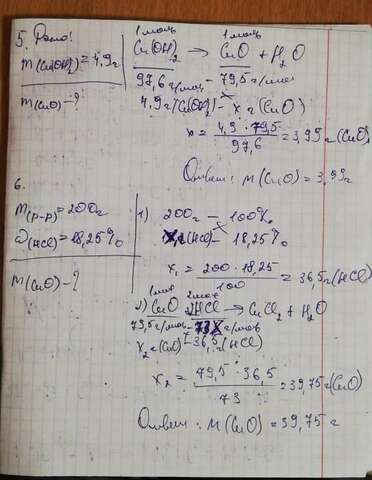 5. Дано:
m(Cu(OH)₂) = 4,9г
m(CuO) - ?
1 моль 1 моль
Cu(OH)₂ → CuO + H₂O
97,6 г/моль - 79,5 г/моль
4,9 г (Cu(OH)₂) - x г (CuO)
x = 4,9 · 79,5 / 97,6 = 3,99 г (CuO)
Ответ: m(CuO) = 3,99г
6.
m(р-р) = 200г
ω(HCl) = 18,25%
m(CuO) - ?
1) 200г - 100%
x₁г(HCl) - 18,25%
x₁ = 200 · 18,25 / 100 = 36,5г (HCl)
1 моль 2 моль
2) CuO + 2HCl → CuCl₂ + H₂O
79,5 г/моль - 73 г/моль
x₂ г (CuO) - 36,5 г (HCl)
x₂ = 79,5 · 36,5 / 73 = 39,75 г (CuO)
Ответ: m(CuO) = 39,75 г